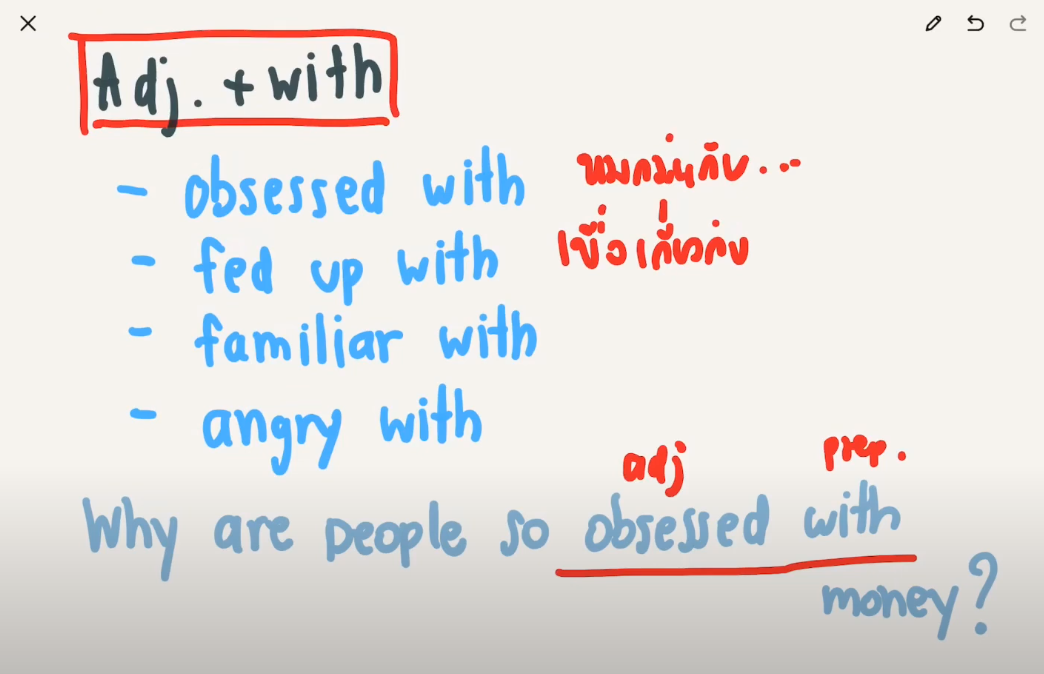 Adj. + with
- obsessed with หมกมุ่นกับ...
- fed up with เบื่อเกี่ยวกับ
- familiar with
- angry with
adj prep.
Why are people so obsessed with
money?